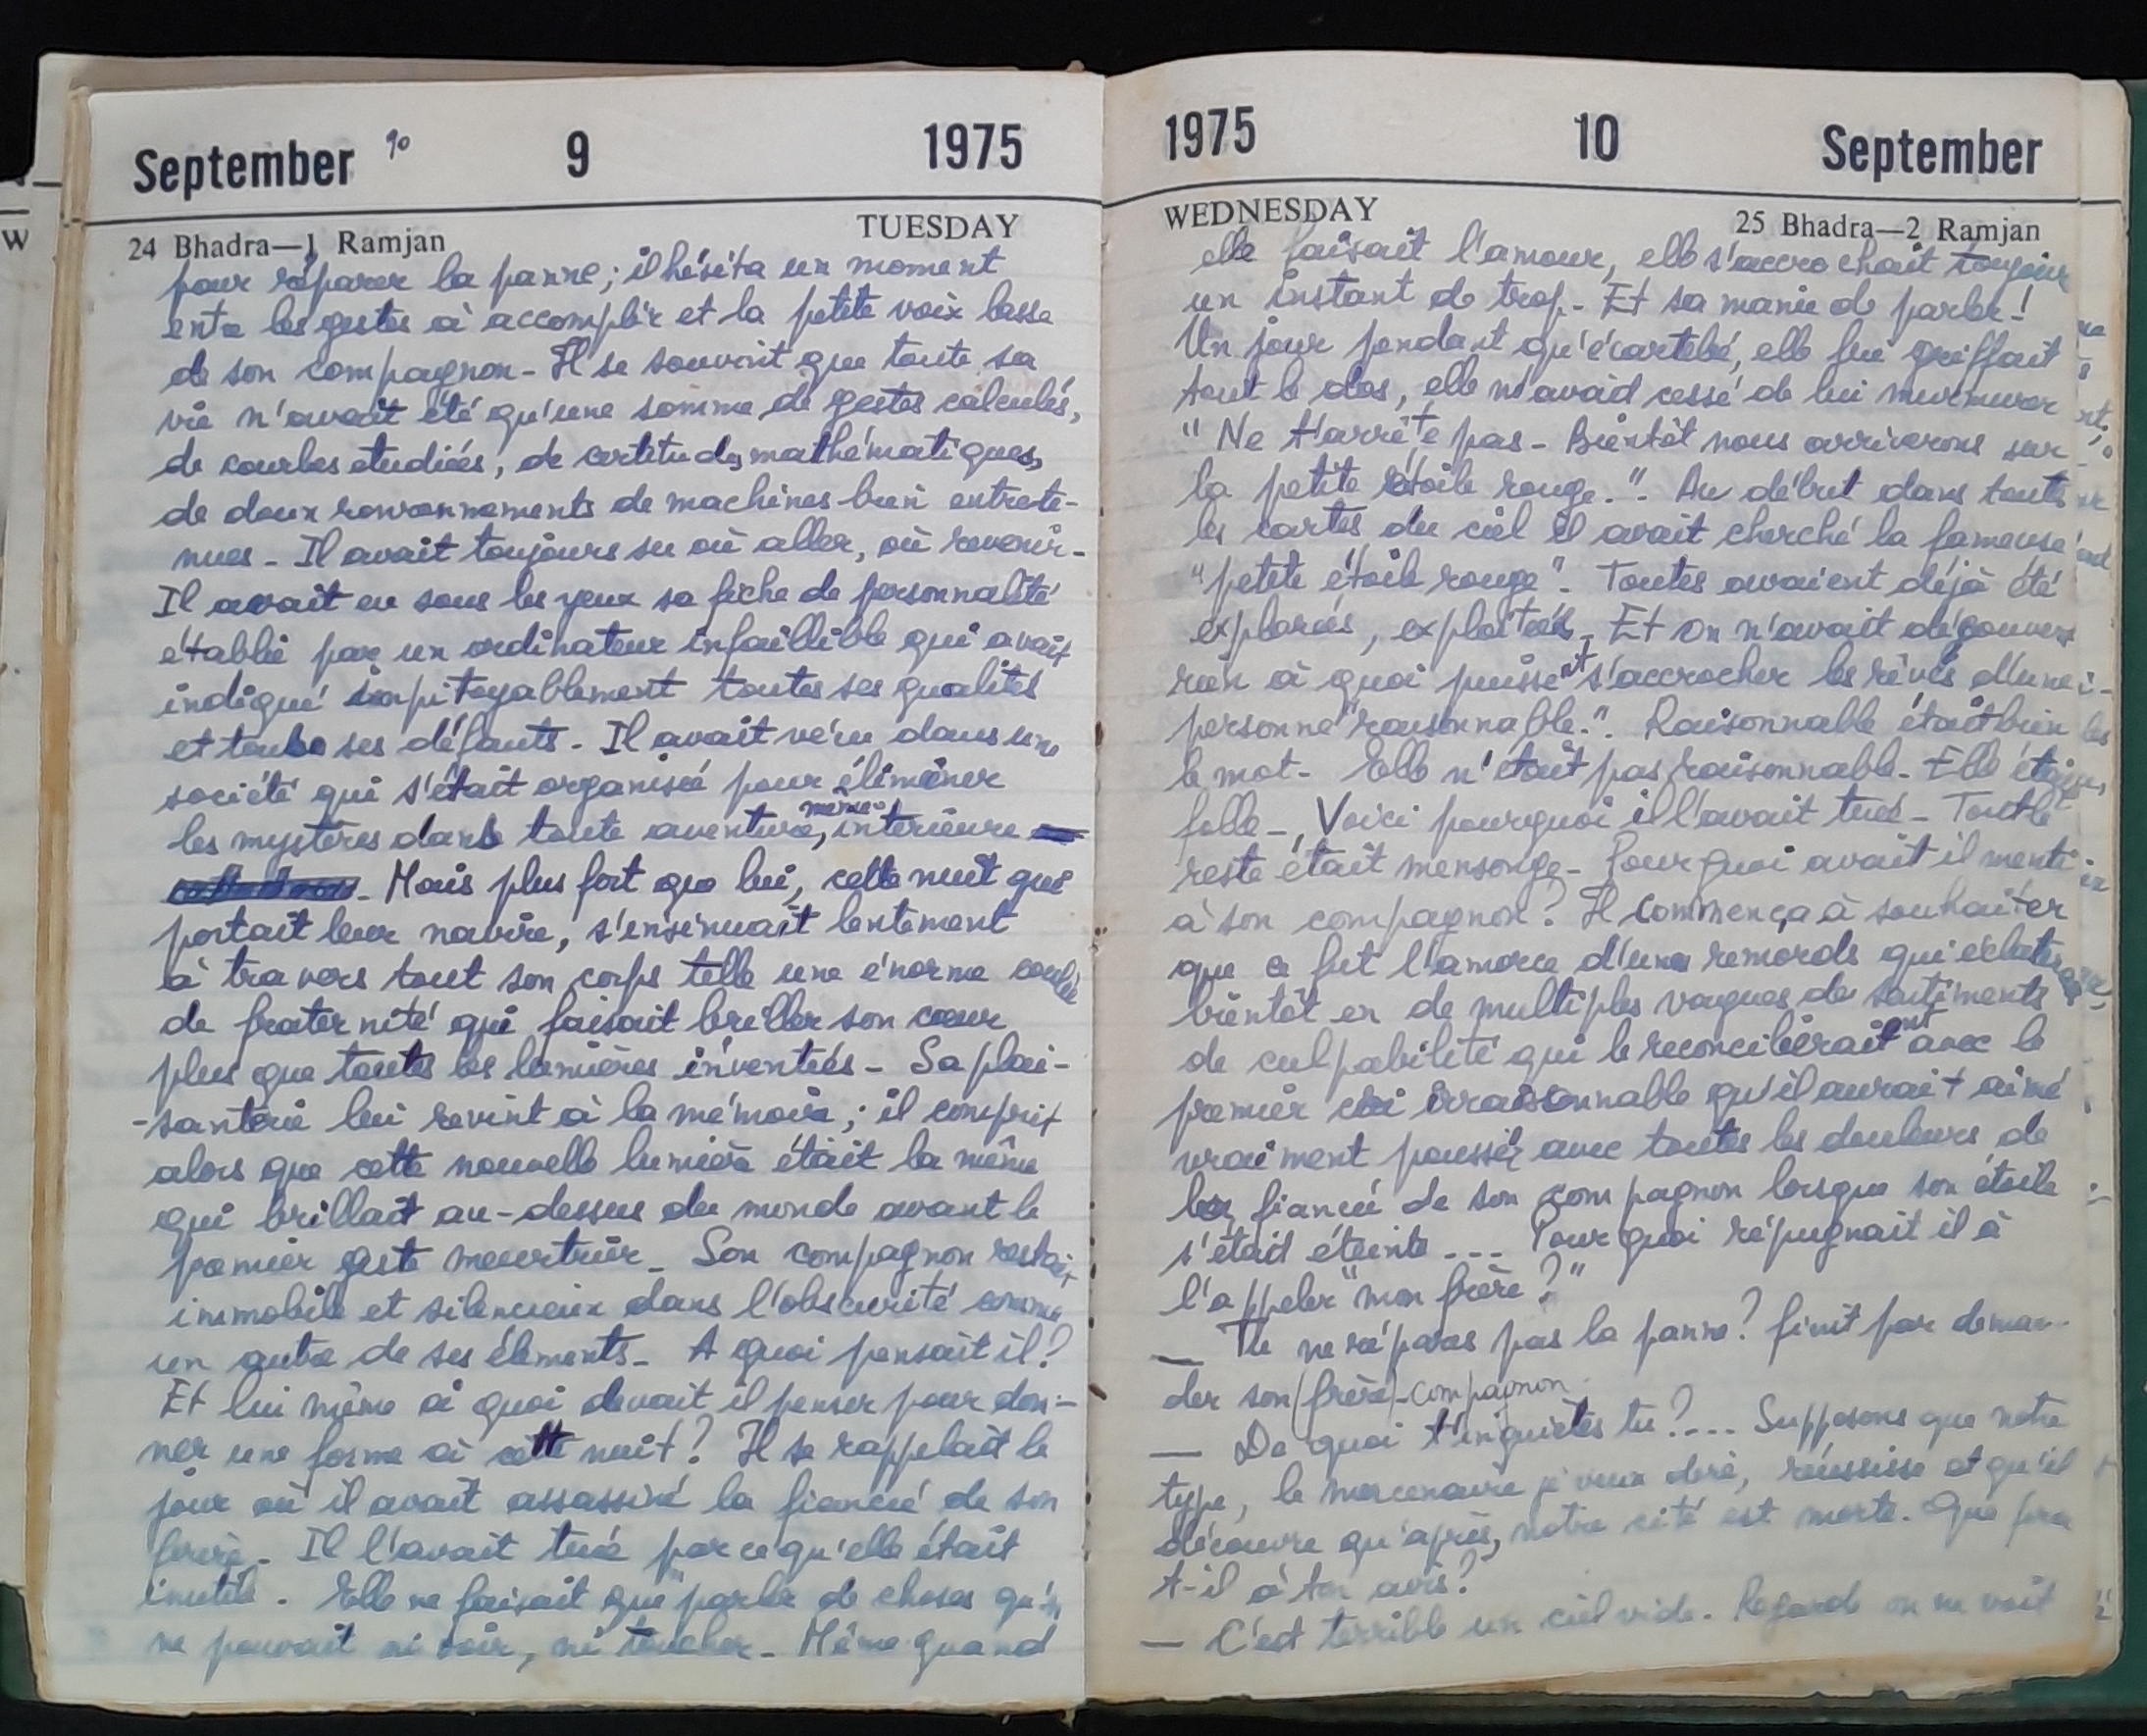 September 90 9 1975
24 Bhadra—1 Ramjan TUESDAY
pour réparer la panne; il hésita un moment
entre les gestes à accomplir et la petite voix basse
de son compagnon - Il se souvint que toute sa
vie n'avait été qu'une somme de gestes calculés,
de courbes étudiées, de certitudes mathématiques,
de doux ronronnements de machines bien entrete-
nues - Il avait toujours su où aller, où revenir -
Il avait eu sous les yeux sa fiche de personnalité
établie par un ordinateur infaillible qui avait
indiqué impitoyablement toutes ses qualités
et tous ses défauts - Il avait vécu dans une
société qui s'était organisée pour éliminer
les mystères dans toute aventure, même intérieure
- Mais plus fort que lui, cette nuit que
portait leur navire, s'insinuait lentement
à travers tout son corps telle une énorme coulée
de fraternité qui faisait briller son cœur
plus que toutes les lumières inventées - Sa plai-
-santerie lui revint à la mémoire; il comprit
alors que cette nouvelle lumière était la même
qui brillait au-dessus du monde avant le
premier geste meurtrier - Son compagnon restait
immobile et silencieux dans l'obscurité comme
un autre de ses éléments - A quoi pensait il?
Et lui même à quoi devait il penser pour don-
ner une forme à cette nuit? Il se rappelait le
jour où il avait assassiné la fiancée de son
frère - Il l'avait tuée parce qu'elle était
inutile. Elle ne faisait que parler de choses qu'on
ne pouvait ni voir, ni toucher - Même quand
1975 10 September
WEDNESDAY 25 Bhadra—2 Ramjan
elle faisait l'amour, elle s'accrochait toujours
un instant de trop - Et sa manie de parler!
Un jour pendant qu'écartelée, elle lui griffait
tout le dos, elle n'avait cessé de lui murmurer
"Ne t'arrête pas - Bientôt nous arriverons sur
la petite étoile rouge.". Au début dans toutes
les cartes du ciel il avait cherché la fameuse
"petite étoile rouge". Toutes avaient déjà été
explorées, exploitées - Et on n'avait découvert
rien à quoi puissent s'accrocher les rêves d'une
personne "raisonnable.". Raisonnable était bien
le mot - Elle n'était pas raisonnable - Elle était
folle -, Voici pourquoi il l'avait tuée - Tout le
reste était mensonge - Pourquoi avait il menti
à son compagnon? Il commença à souhaiter
que ce fut l'amorce d'un remords qui éclaterait
bientôt en de multiples vagues de sentiments
de culpabilité qui le reconcilieraient avec le
premier cri irraisonnable qu'il aurait aimé
vraiment pousser avec toutes les douleurs de
la fiancée de son compagnon lorsque son étoile
s'était éteinte .... Pourquoi répugnait il à
l'appeler "mon frère?"
— Tu ne répares pas la panne? finit par deman-
der son (frère)-compagnon.
— De quoi t'inquiètes tu?.... Supposons que notre
type, le mercenaire je veux dire, réussisse et qu'il
découvre qu'après, notre cité est morte. Que fera
t-il à ton avis?
— C'est terrible un ciel vide. Regarde on ne voit